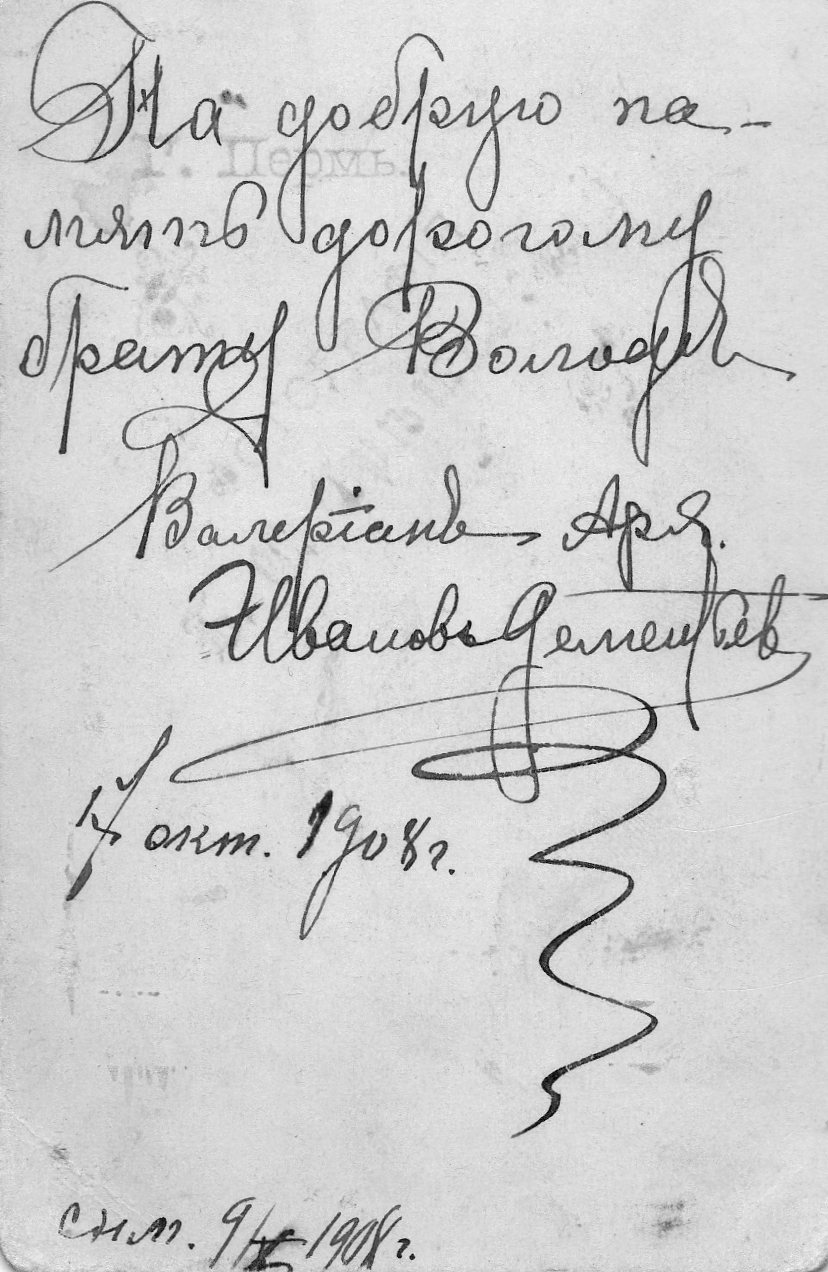 На добрую па-
мять дорогому
брату Володѣ
Валерiанъ Ар.
Ивановъ Дементьев
17 окт. 1908 г.
г. Пермь.
снм. 9/X 1908 г.